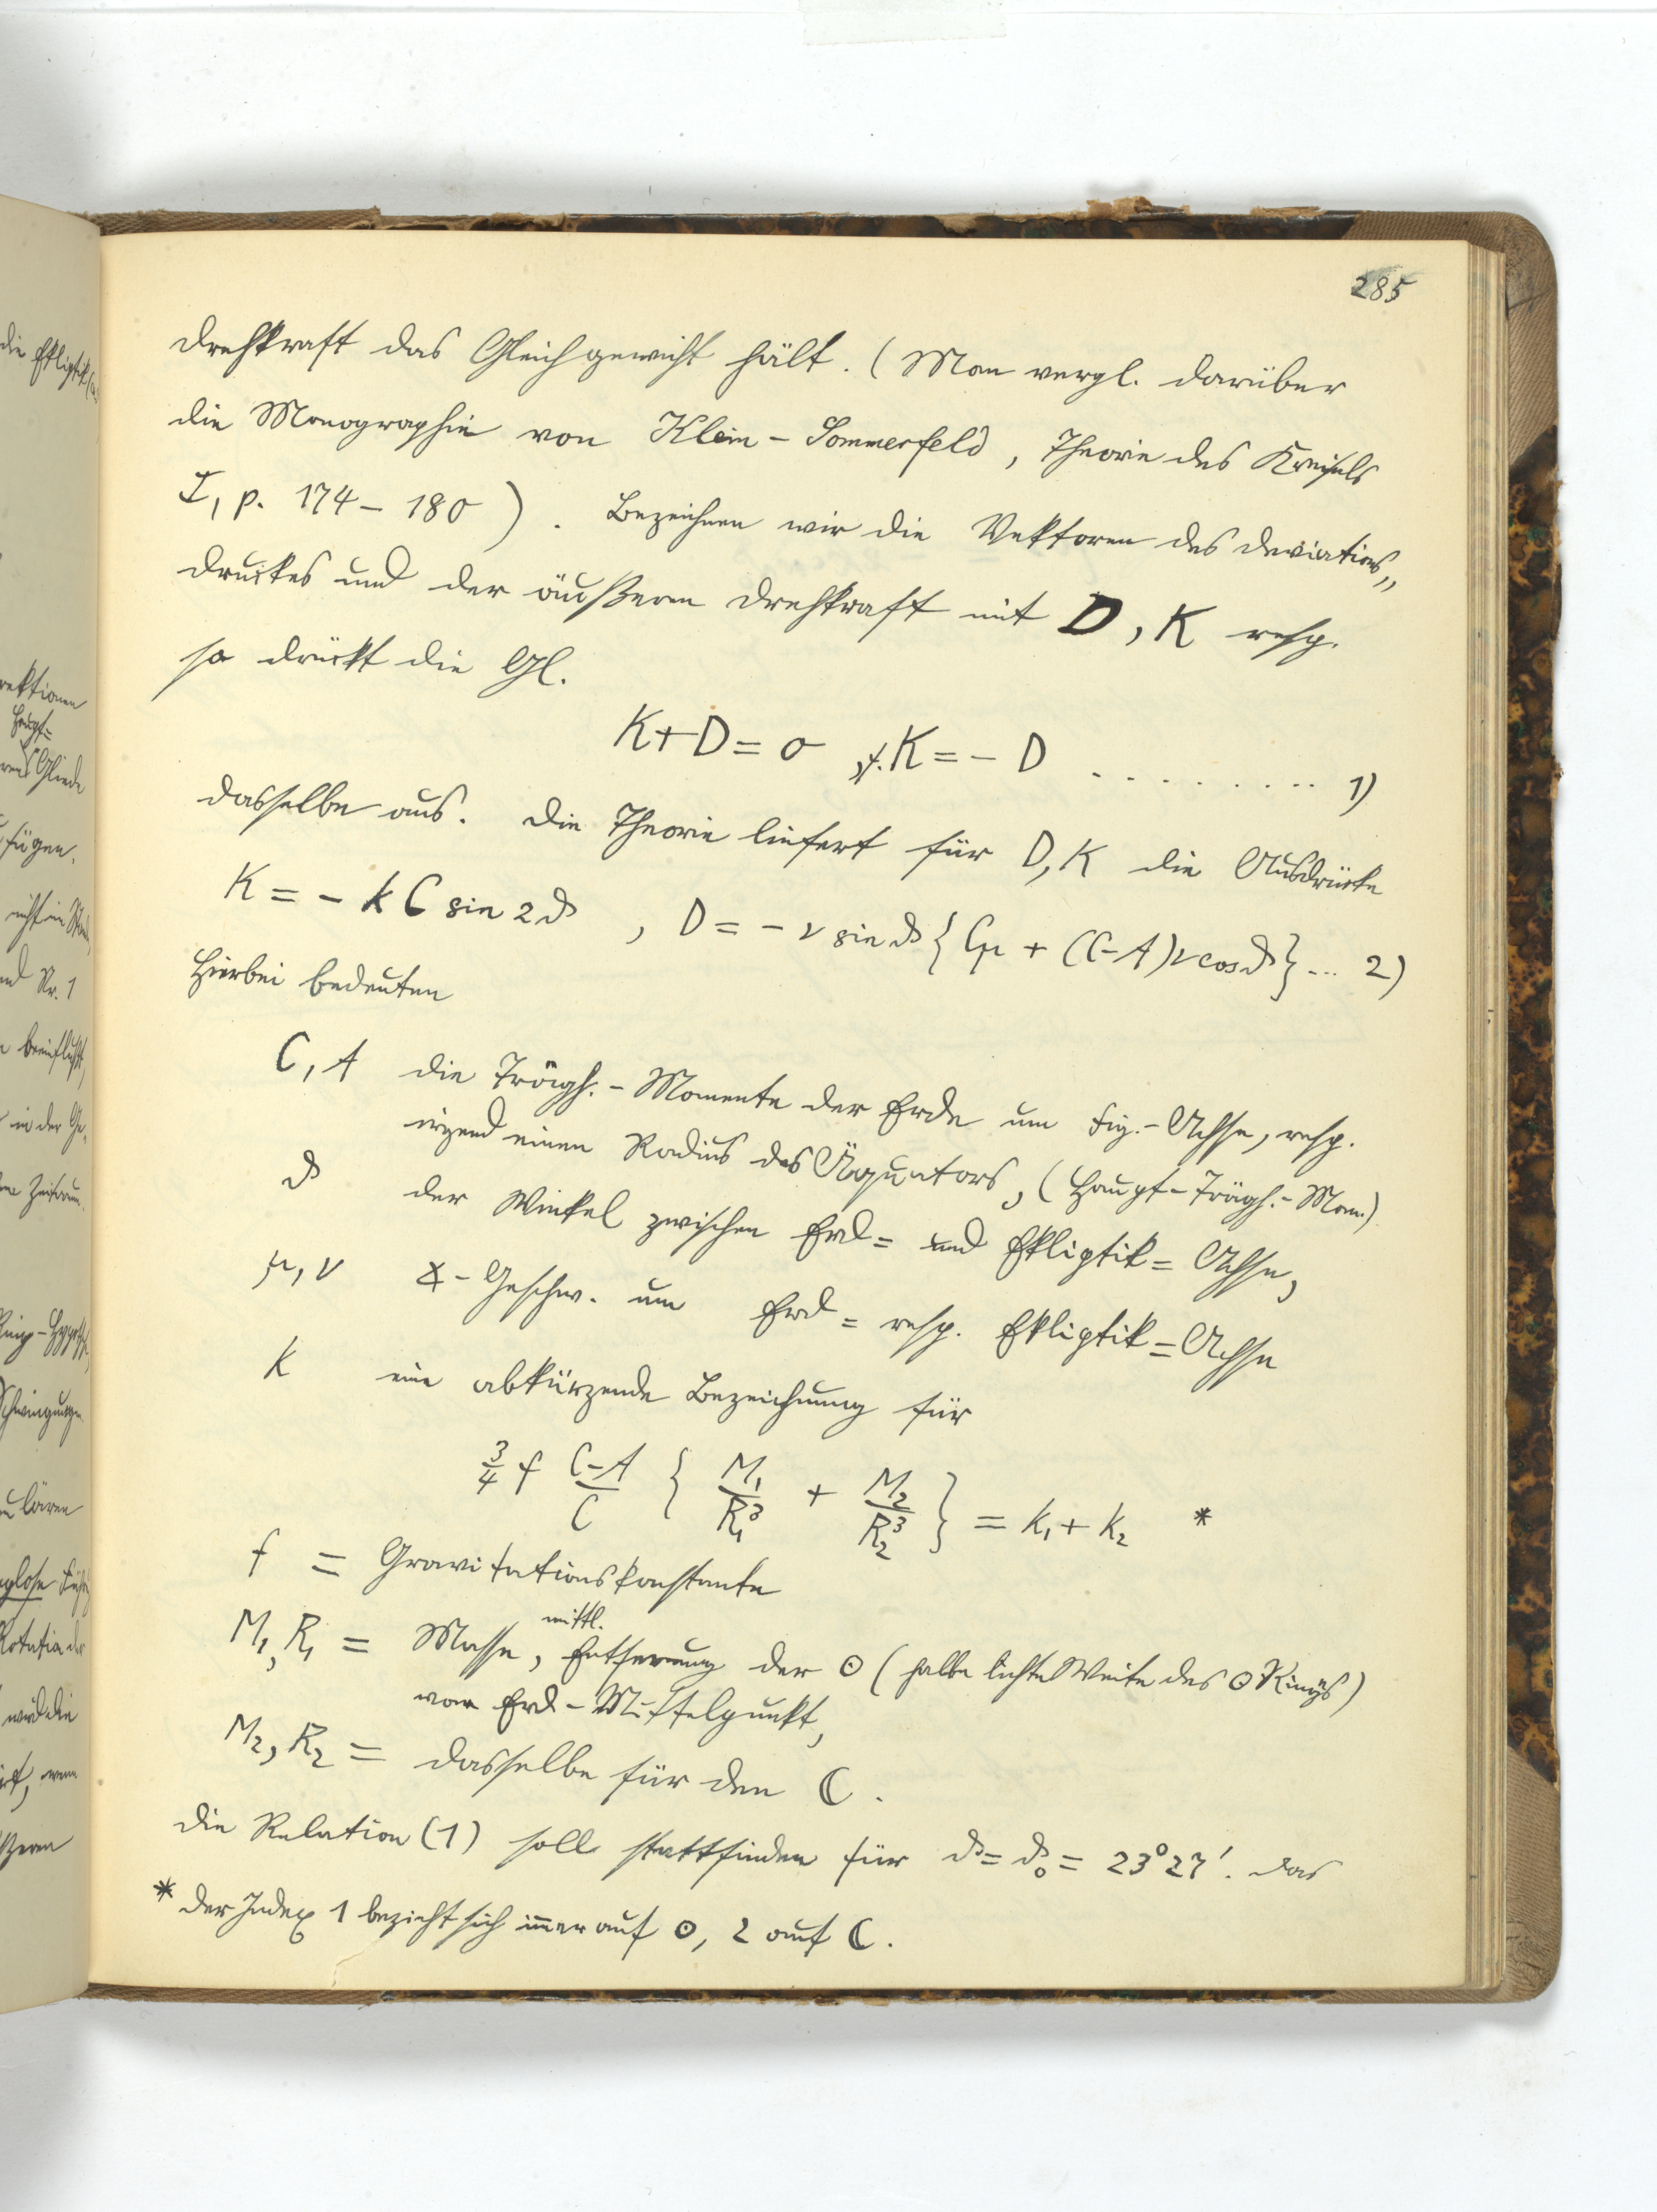 285
Drehkraft das Gleichgewicht hält. (Man vergl. darüber
die Monographie von Klein - Sommerfeld, Theorie des Kreisels
I, p. 174 - 180). Bezeichnen wir die Vektoren des Deviations„
druckes und der äußeren Drehkraft mit D, K resp.
so drückt die Gl.
K + D = 0, K = - D .......... 1)
dasselbe aus. Die Theorie liefert für D, K die Ausdrücke
K = - k C sin 2ϑ , D = - ν sin ϑ { Cμ + (C-A) ν cos ϑ } ... 2)
Hierbei bedeuten
C, A die Trägh. - Momente der Erde um Fig. - Achse, resp.
irgend einen Radius des Äquators, (Haupt - Trägh. - Mom.)
ϑ der Winkel zwischen Erd= und Ekliptik= Achse,
μ, ν ∢ - Geschw. um Erd= resp. Ekliptik= Achse
k eine abkürzende Bezeichnung für
3/4 f (C-A)/C { M₁/R₁³ + M₂/R₂³ } = k₁ + k₂ *
f = Gravitationskonstante
M₁, R₁ = Masse, mittl. Entfernung der ⊙ (halbe lichte Weite des ⊙ Rings)
vom Erd - Mittelpunkt,
M₂, R₂ = dasselbe für den ☾.
Die Relation (1) soll stattfinden für ϑ = ϑ₀ = 23°27'. Das
* Der Index 1 bezieht sich immer auf ⊙, 2 auf ☾.